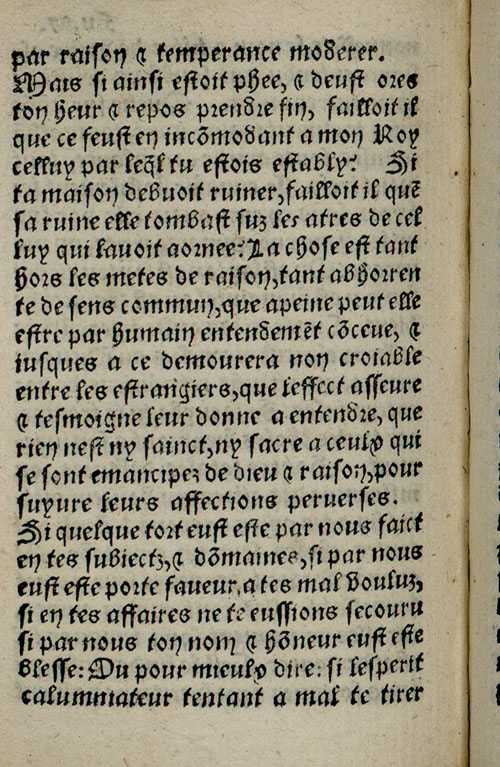 par raison & temperance moderer.
Mais si ainsi estoit phee, & deust ores
ton heur & repos prendre fin, failloit il
que ce feust en incõmodant a mon Roy
celluy par leq̃l tu estois estably? Si
ta maison debuoit ruiner, failloit il quẽ
sa ruine elle tombast suz les atres de cel
luy qui lauoit aornee? La chose est tant
hors les metes de raison, tant abhorren
te de sens commun, que apeine peut elle
estre par humain entendemẽt cõceue, &
iusques a ce demourera non croiable
entre les estrangiers, que leffect asseure
& tesmoigne leur donne a entendre, que
rien nest ny sainct, ny sacre a ceulx qui
se sont emancipez de dieu & raison, pour
suyure leurs affections peruerses.
Si quelque tort eust este par nous faict
en tes subiectz, & dõmaines, si par nous
eust este porte faueur, a tes mal vouluz,
si en tes affaires ne te eussions secouru
si par nous ton nom & hõneur eust este
blesse: Ou pour mieulx dire: si lesperit
calumniateur tentant a mal te tirer